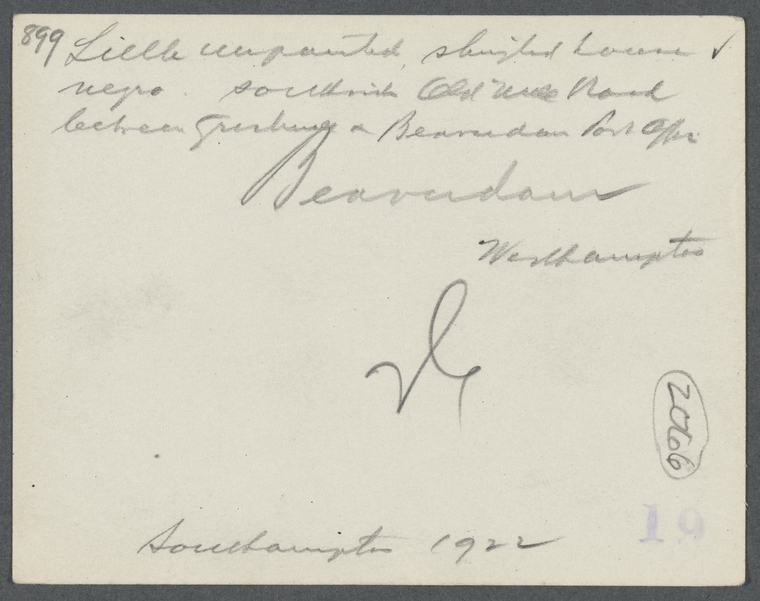 899 Little unpainted, shingled house &
negro. south side Old Mill Road
between & Beaverdam Post Office
Beaverdam
Westhampton
2066
19
Southampton 1922